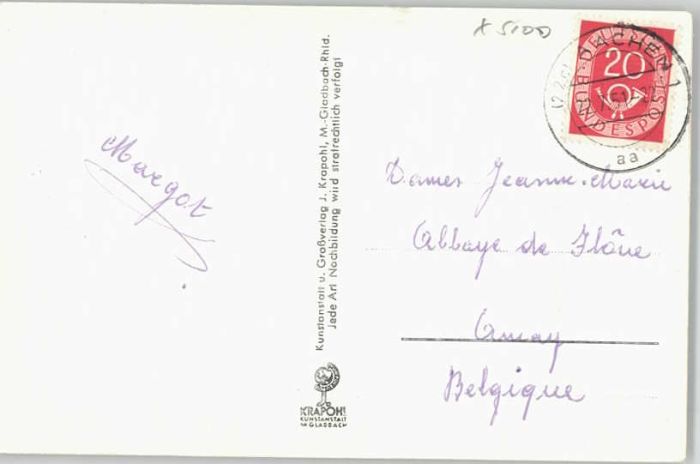 x 5100
DEUTSCHE
BUNDESPOST
20
AACHEN 1
aa
Margot
Kunstanstalt u. Großverlag J. Krapohl, M.-Gladbach-Rhld.
Jede Art Nachbildung wird strafrechtlich verfolgt
KRAPOHL
KUNSTANSTALT
M GLADBACH
Dames Jeanne-Marie
Abbaye de Flône
Amay
Belgique